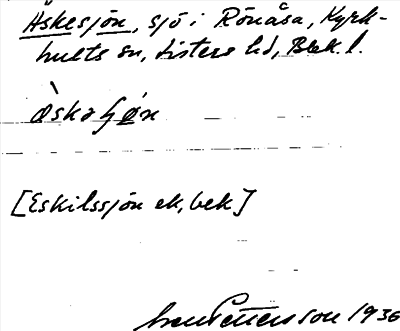 Äskesjön, sjö i Rönåsa, Kyrk-
hults sn, Listers hd, Blek. l.
[Eskilssjön ek, bek]
Pettersson 1936